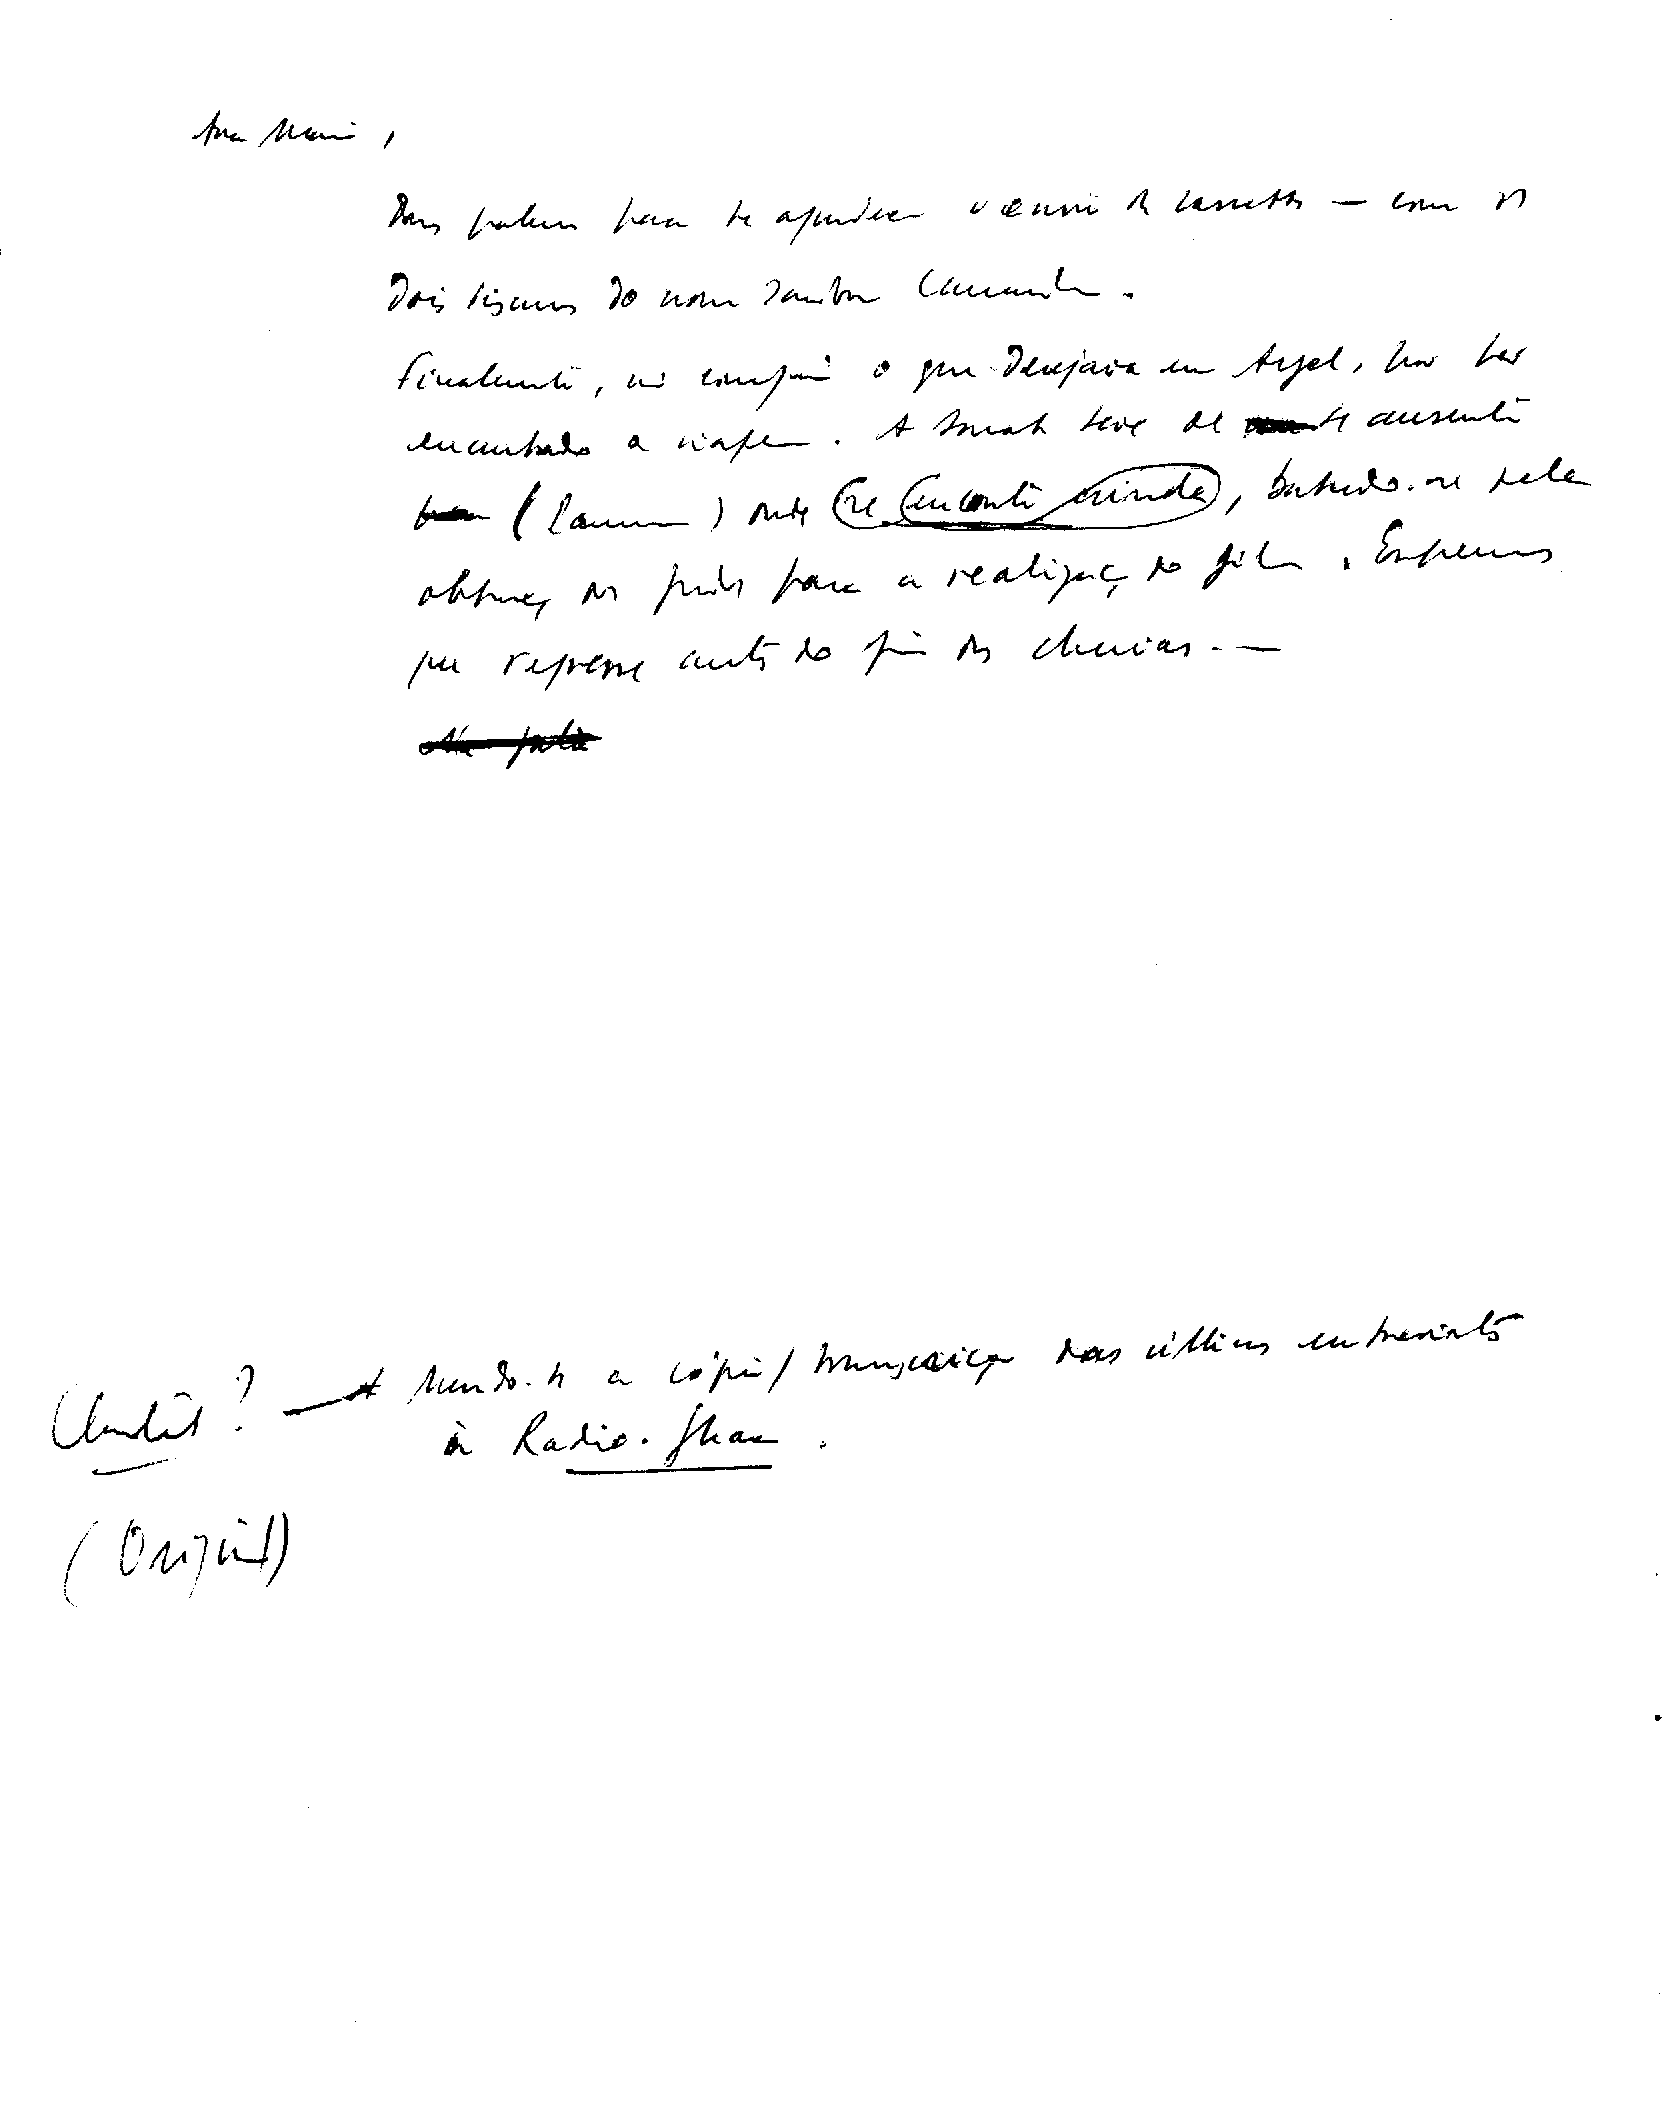 Ana Maria,
Duas palavras para te agradecer o envio da cassette — com os
dois discursos do nosso saudoso Camarada.
Finalmente, não consegui o que desejava em Argel, por ter
encurtado a viagem. A Sarah teve de se ausentar
( ) onde se encontra ainda, batendo-se pela
obtenção dos fundos para a realização do filme. Esperemos
que regresse antes do fim das chuvas. —
? — Mando-te a cópia/transcrição das últimas entrevistas
à Radio-Ghana.
(Original)